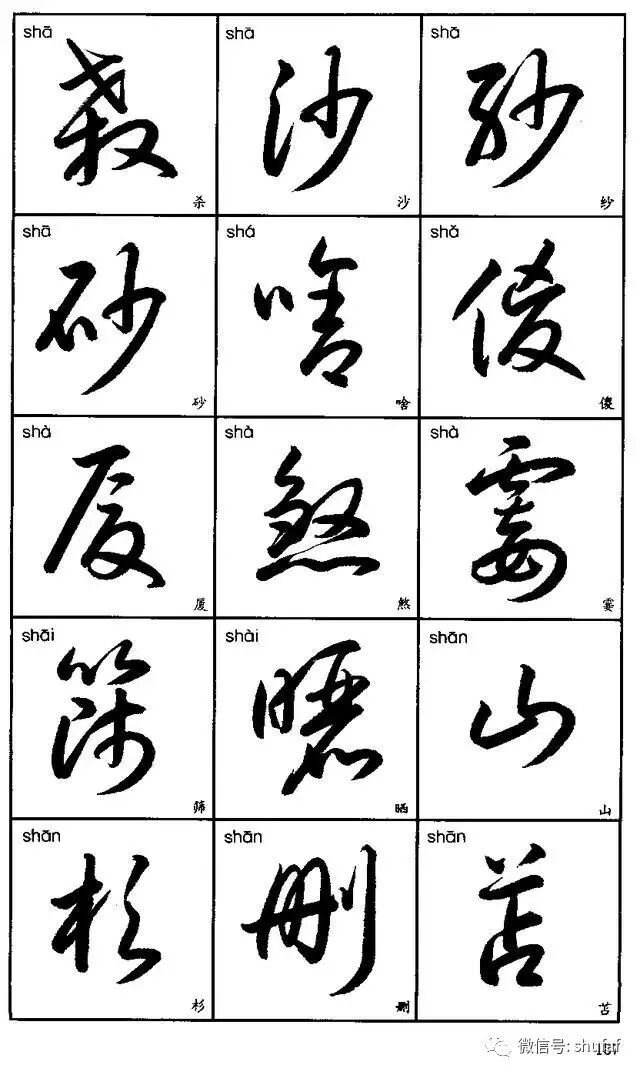 shā shā shā
殺 沙 紗
杀 沙 纱
shā shá shǎ
砂 啥 傻
砂 啥 傻
shà shà shà
厦 煞 霎
厦 煞 霎
shāi shài shān
篩 曬 山
筛 晒 山
shān shān shān
杉 删 苫
杉 删 苫
微信号: shufaf